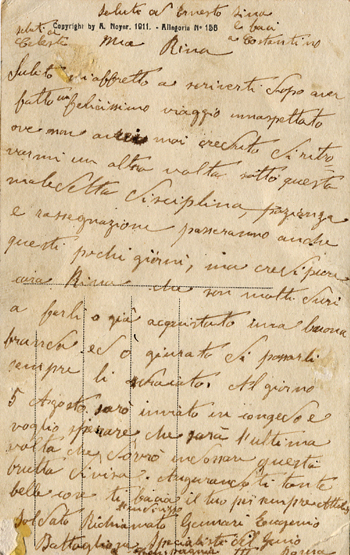 saluti a Ernesto Lina
saluti a Copyright by A. Noyer. 1911. - Allegoria N° 156 e baci
Celeste Mia Rina a Costantino
Subito mi affretto a scriverti dopo aver
fatto un felicissimo viaggio innaspettato
ove non avrei mai creduto di ritro
varmi un altra volta sotto questa
maledetta disciplina, pazienza
e rassegnazione passeranno anche
questi pochi giorni, ma credi pure
cara Rina che son molti duri
a farli o già acquistato una buona
branda ed ò giurato di passarli
sempre li sdraiato. Al giorno
5 Agosto sarò inviato in congedo e
voglio sperare che sarà l'ultima
volta che dovrò indossare questa
brutta divisa. Augurandoti tante
belle cose ti bacia il tuo pr sempre
Soldato Richiamato Gennari Eugenio
Battaglione Specialisti del Genio
compagnia Roma